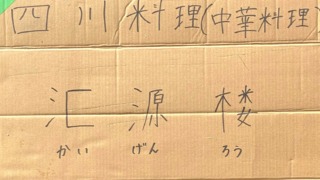 四川料理(中華料理)
汇源楼
かい げん ろう